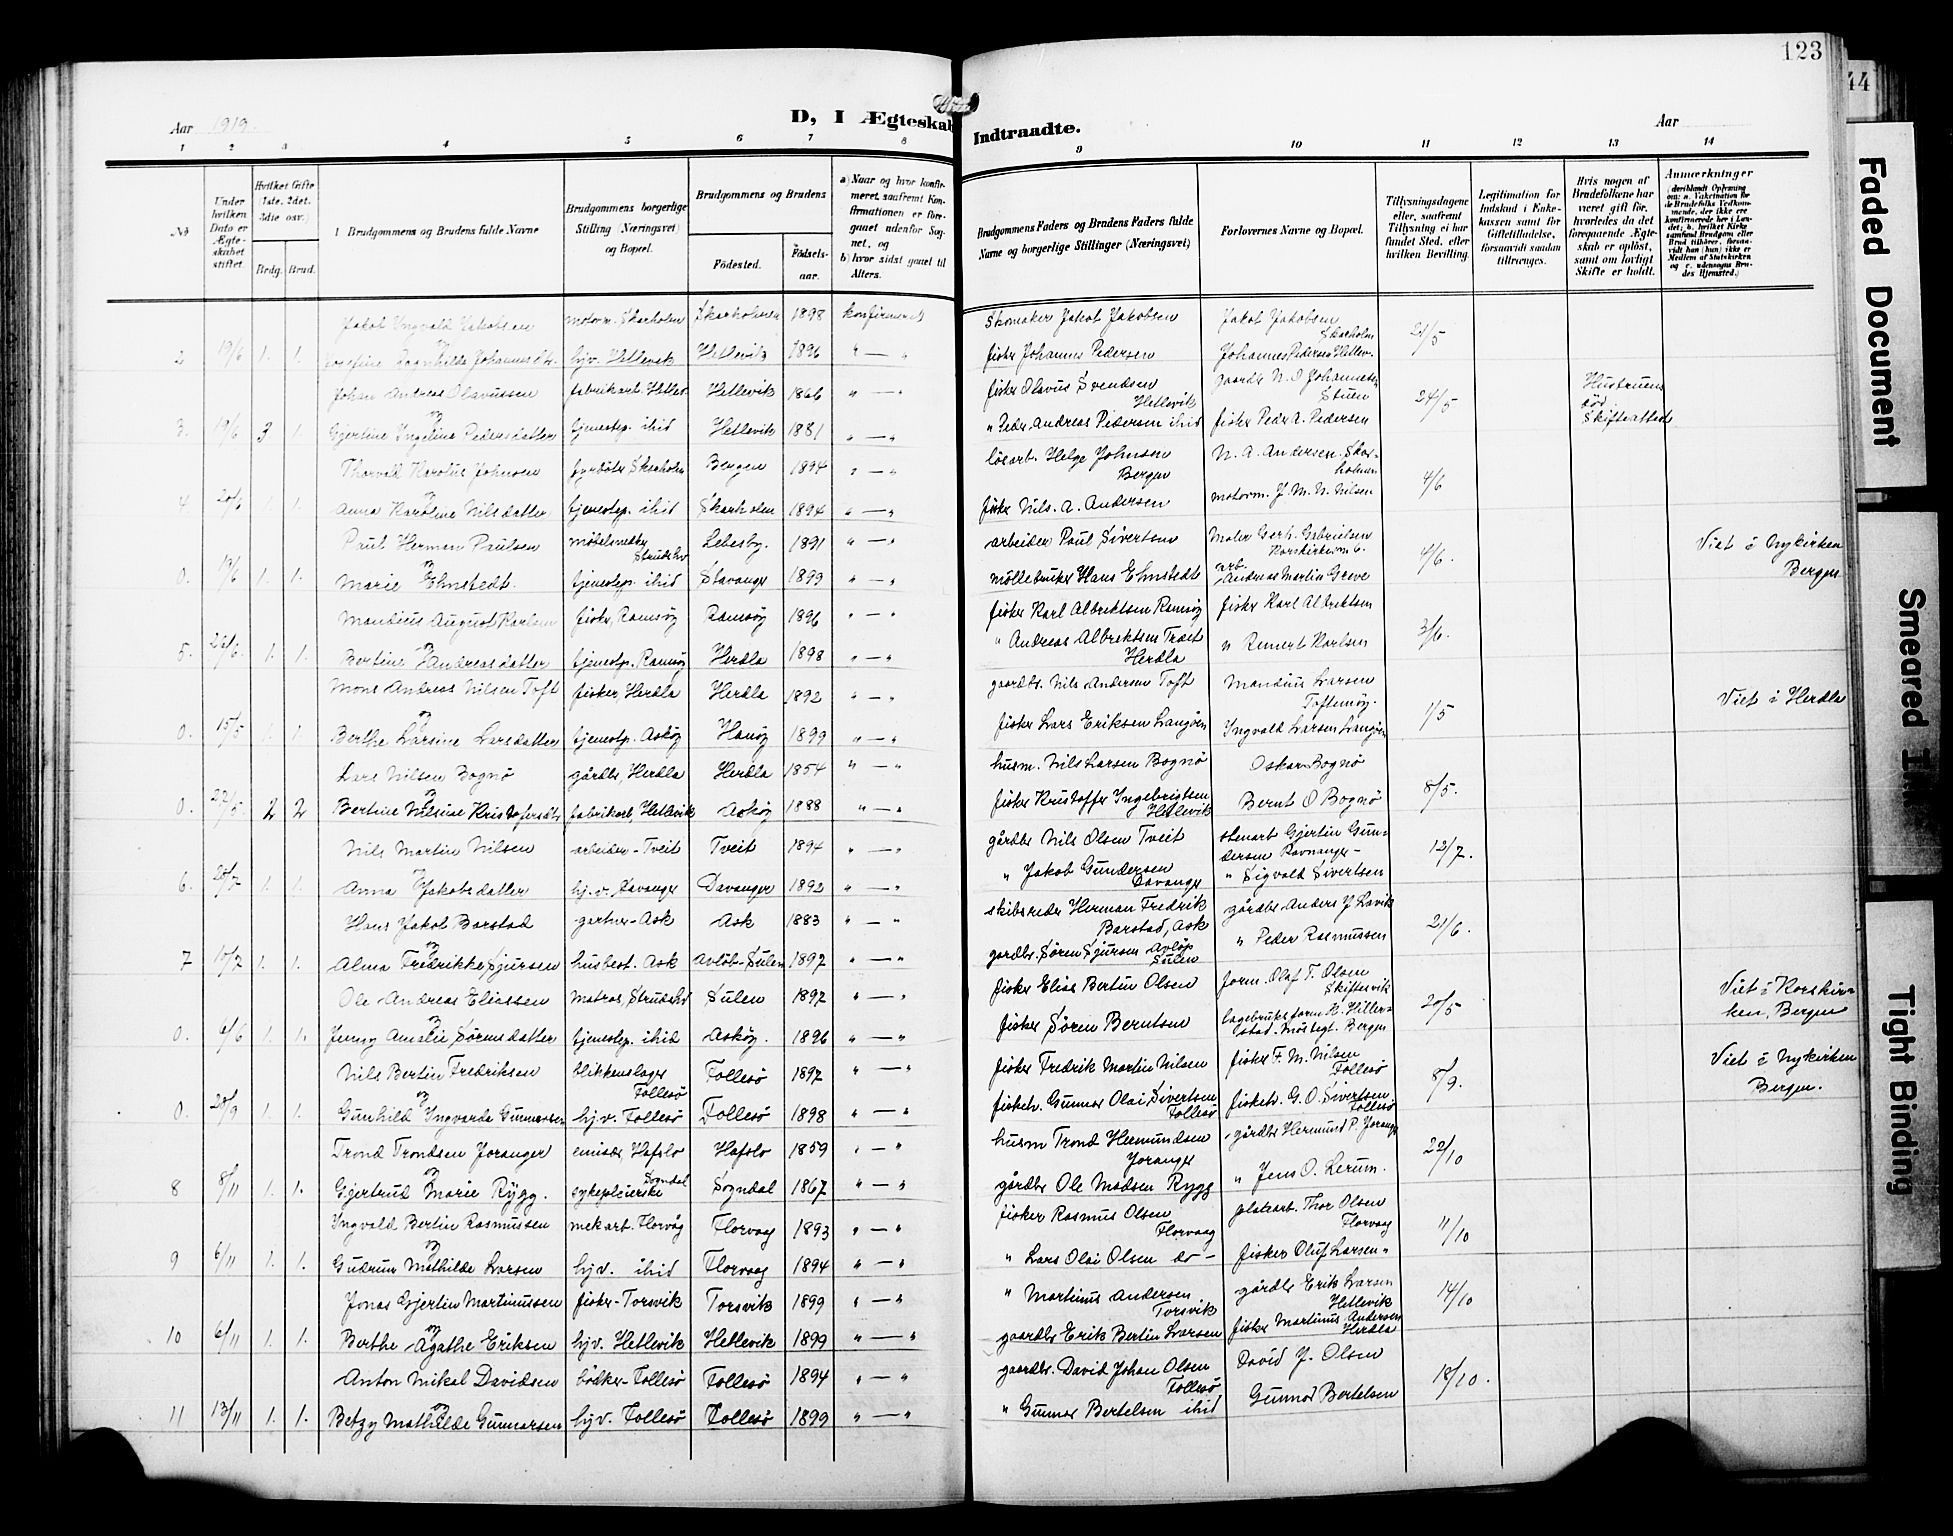 123
44
D, I Ægteskab Indtraadte.
Aar 1919.
Aar
1 2 3 4 5 6 7 8 9 10 11 12 13 14
No
Under hvilken Dato er Ægteskabet stiftet.
Hvilket Gifte (1ste, 2det, 3die osv.)
Brdg. Brud.
Brudgommens og Brudens fulde Navne
Brudgommens borgerlige Stilling (Næringsvei) og Bopæl.
Brudgommens og Brudens
Fødested. Fødsels-aar.
a) Naar og hvor konfirmeret, saafremt Konfirmationen er foregaaet udenfor Sognet, og
b) hvor sidst gaaet til Alters.
Brudgommens Faders og Brudens Faders fulde Navne og borgerlige Stillinger (Næringsvei)
Forlovernes Navne og Bopæl.
Tillysningsdagene eller, saafremt Tillysning ei har fundet Sted, efter hvilken Bevilling.
Legitimation for Indskud i Enkekassen samt for Giftetilladelse, forsaavidt saadan tiltrænges.
Hvis nogen af Brudefolkene har været gift før, hvorledes da det foregaaende Ægteskab er opløst, samt om lovligt Skifte er holdt.
Anmærkninger
Jakob Ingvald Jakobsen motorm. Skarholen Skarholmen 1898 konfirmeret Skomaker Jakob Jakobsen Jakob Jakobsen Skarholm 21/5
2 19/6 1. 1. Josefine Ragnhilde Johannesdtr. hjv. Hetlevik Hetlevik 1896 " — " fisker Johannes Pedersen Johannes Pedersen Hetlev.
Johan Andreas Olavussen fabrikarb. Hetlev. Hetlevik 1866 " — " fisker Olavus Svendsen Hetlevik gaardb. N. O. Johannesen Stuen 24/5 Hustruens död Skifteattest
3. 19/6 3 1. Gjertine Ingeline Pedersdatter tjenestep. ibid Hetlevik 1881 " — " " Peder Andreas Pedersen ibid fisker Peder A. Pedersen
Thorvald Karolus Johnsen fyrböter Skarholm Bergen 1894 " — " lösarb. Helge Johnsen Bergen N. A. Andersen. Skarholmen 4/6
4 20/6 1. 1. Anna Karoline Nilsdatter tjenestep. ibid Skarholm 1894 " — " fisker Nils. A. Andersen motorm. J. M. N. Nilsen
Paul Herman Paulsen möbelsnekker Strudshv Lebesby. 1891 " — " arbeider Paul Sivertsen Maler Gerh. Gabrielsen Korskirkealm 6. 4/6. Viet i Nykirken Bergen
0. 19/6 1. 1. Marie Elmstedt. tjenestep. ibid Stavanger 1899 " — " möllebruker Hans Elmstedt arb. Andreas Martin Greve
Mandius August Karlsen fisker, Ramsöy Ramsöy 1896 " — " fisker Karl Albrektsen Ramsöy fisker Karl Albrektsen 3/6.
5. 26/6. 1. 1. Bertine Andreasdatter tjenestep. Ramsöy Herdla 1898 " — " " Andreas Albrektsen Træet Herdla " Reinert Karlsen
Mons Andreas Nilsen Toft fisker, Herdla Herdla 1892 " — " gaardbr. Nils Andersen Toft Mandius Larsen Toftemöy. 1/5 Viet i Herdla
0. 15/5 1. 1. Berthe Larsine Larsdatter tjenestp. Asköy Hanöy 1899 " — " fisker Lars Eriksen Langöen Ingvald Larsen Langöen
Lars Nilsen Bognö gårdbr, Herdla Herdla 1854 " — " husm. Nils Larsen Bognö Oskar Bognö 8/5.
0. 22/5. 2 2 Bertine Nilsine Kristofersdtr fabrikarb, Hetlevik Asköy 1888 " — " fisker Kristoffer Ingebrigtsen Hetlevik Bernt O Bognö
Nils Martin Nilsen arbeider - Tveit Tveit 1894 " — " gårdbr Nils Olsen Tveit stenarb Gjertin Gundersen Ravnanger - 12/7.
6. 25/7 1. 1. Anna Jakobsdatter hj.v. Davanger Davanger 1892 " — " " Jakob Gundersen Davanger " Sigvald Sivertsen
Hans Jakob Barstad gartner - Ask Ask 1883 " — " skibsreder Herman Fredrik Barstad, Ask gårdbr Anders J Lavik 21/6.
7 10/7 1. 1. Alma Fredrikke Sjursen husbest. Ask Avlöb-Sulen 1897 " — " gardbr. Sören Sjursen Avlöp Sulen " Peder Rasmussen
Ole Andreas Eliassen Matros, Strudshv Sulen 1897 " — " fisker Elias Bertin Olsen form. Olaf T. Olsen Skiftesvik 20/5 Viet i Korskirken, Bergen
0. 4/6 1. 1. Jenny Amalie Sörensdatter tjenestep. ibid Asköy. 1896 " — " fisker Sören Berntsen
Nils Bertin Fredriksen blikkenslager Follesö Follesö 1897 " — " fisker Fredrik Martin Nilsen fisker F. M. Nilsen Follesö 8/9. Viet i Nykirken Bergen.
0. 28/9 1. 1. Gunhild Ingvarda Gunnarsen hj.v. Follesö Follesö 1898 " — " fiskeh. Gunnar Olai Sivertsen Follesö fiskeh. G. O. Sivertsen Follesö
Trond Trondsen Joranger emisær, Hafslo Hafslo 1859 " — " husm Trond Hermundsen Joranger gårdbr Hermund P. Joranger 22/10
8 8/11 1. 1. Gjertrud Marie Rygg. sykepleierske Sogndal Sogndal 1867 " — " gårdbr Ole Madsen Rygg " Jens O. Lerum.
Ingvald Bertin Rasmussen mekarb. Florvåg Florvaag 1893 " — " fisker Rasmus Olsen Florvaag Thor Olsen Florvaag 11/10
9 6/11 1. 1. Gudrun Mathilde Larsen hjv. ibid Florvaag 1894 " — " " Lars Olai Olsen do - fisker Oluf Larsen "
Jonas Gjertin Martinussen fisker - Torsvik Torsvik 1899 " — " " Martinus Andersen Torsvik gårdbr Erik Larsen Hetlevik 14/10
10 6/11 1. 1. Berthe Agathe Eriksen hjv. Hetlevik Hetlevik 1899 " — " gaardbr Erik Bertin Larsen fisker Martinus Andersen Herdla
Anton Mikal Davidsen bödker - Follesö Follesö 1894 " — " gaardbr. David Johan Olsen Follesö David J. Olsen 18/10.
11 13/11 1. 1. Betzy Mathilde Gunnarsen hjv. Follesö Follesö 1899 " — " " Gunnar Bertelsen ibid Gunnar Bertelsen
Faded Document
Smeared Ink
Tight Binding